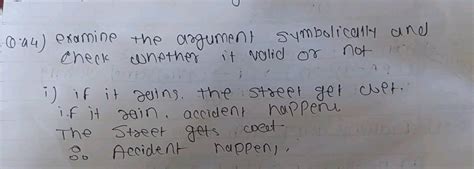 Q.a4) examine the argument symbolically and
check whether it valid or not
i) if it rains. the street get wet.
if it rain. accident happen
The Street gets wet.
∴ Accident happen,.